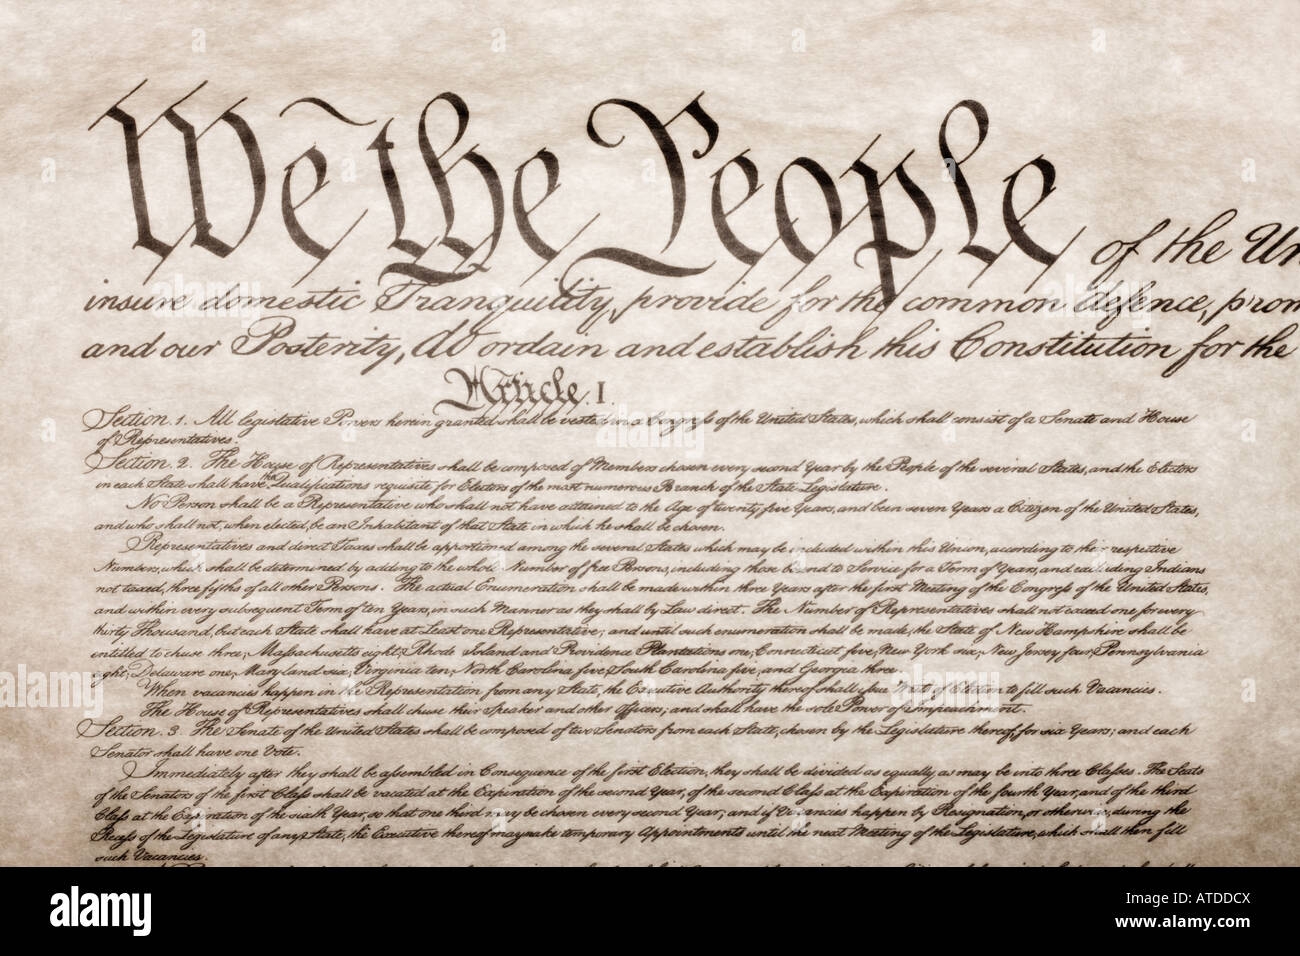 We the People of the Un
insure domestic Tranquility, provide for the common defence, prom
and our Posterity, do ordain and establish this Constitution for the
Article. I.
Section. 1. All legislative Powers herein granted shall be vested in a Congress of the United States, which shall consist of a Senate and House
of Representatives.
Section. 2. The House of Representatives shall be composed of Members chosen every second Year by the People of the several States, and the Electors
in each State shall have the Qualifications requisite for Electors of the most numerous Branch of the State Legislature.
No Person shall be a Representative who shall not have attained to the Age of twenty five Years, and been seven Years a Citizen of the United States,
and who shall not, when elected, be an Inhabitant of that State in which he shall be chosen.
Representatives and direct Taxes shall be apportioned among the several States which may be included within this Union, according to their respective
Numbers, which shall be determined by adding to the whole Number of free Persons, including those bound to Service for a Term of Years, and excluding Indians
not taxed, three fifths of all other Persons. The actual Enumeration shall be made within three Years after the first Meeting of the Congress of the United States,
and within every subsequent Term of ten Years, in such Manner as they shall by Law direct. The Number of Representatives shall not exceed one for every
thirty Thousand, but each State shall have at Least one Representative; and until such enumeration shall be made, the State of New Hampshire shall be
entitled to chuse three, Massachusetts eight, Rhode Island and Providence Plantations one, Connecticut five, New York six, New Jersey four, Pennsylvania
eight, Delaware one, Maryland six, Virginia ten, North Carolina five, South Carolina five, and Georgia three.
When vacancies happen in the Representation from any State, the Executive Authority thereof shall issue Writs of Election to fill such Vacancies.
The House of Representatives shall chuse their Speaker and other Officers; and shall have the sole Power of Impeachment.
Section. 3. The Senate of the United States shall be composed of two Senators from each State, chosen by the Legislature thereof, for six Years; and each
Senator shall have one Vote.
Immediately after they shall be assembled in Consequence of the first Election, they shall be divided as equally as may be into three Classes. The Seats
of the Senators of the first Class shall be vacated at the Expiration of the second Year, of the second Class at the Expiration of the fourth Year, and of the third
Class at the Expiration of the sixth Year, so that one third may be chosen every second Year; and if Vacancies happen by Resignation, or otherwise, during the
Recess of the Legislature of any State, the Executive thereof may make temporary Appointments until the next Meeting of the Legislature, which shall then fill
such Vacancies.
alamy
Image ID: ATDDCX
www.alamy.com